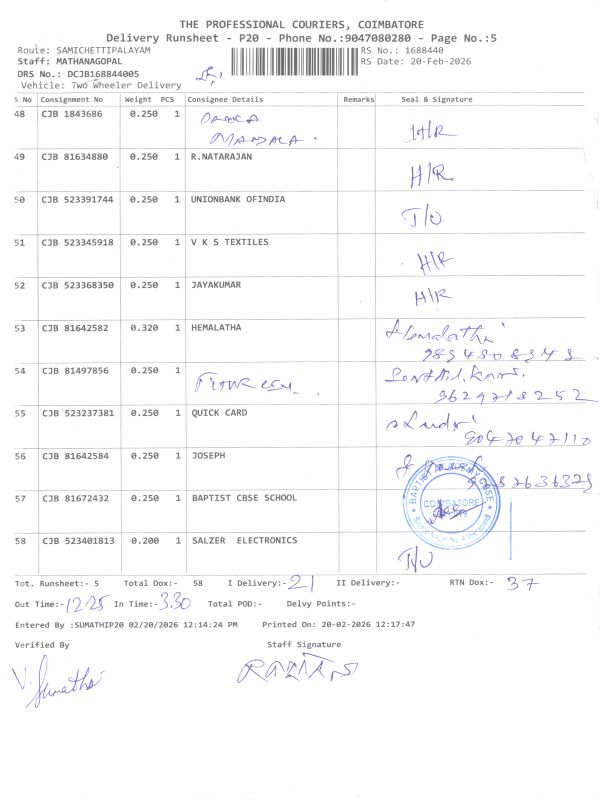 THE PROFESSIONAL COURIERS, COIMBATORE
Delivery Runsheet - P20 - Phone No.:9047080280 - Page No.:5
Route: SAMICHETTIPALAYAM RS No.: 1688440
Staff: MATHANAGOPAL RS Date: 20-Feb-2026
DRS No.: DCJB168844005
Vehicle: Two Wheeler Delivery
S No Consignment No Weight PCS Consignee Details Remarks Seal & Signature
48 CJB 1843686 0.250 1 H/R
49 CJB 81634880 0.250 1 R.NATARAJAN H/R
50 CJB 523391744 0.250 1 UNIONBANK OFINDIA T/O
51 CJB 523345918 0.250 1 V K S TEXTILES H/R
52 CJB 523368350 0.250 1 JAYAKUMAR H/R
53 CJB 81642582 0.320 1 HEMALATHA Hemalatha
54 CJB 81497856 0.250 1
9629718252
55 CJB 523237381 0.250 1 QUICK CARD
9047047110
56 CJB 81642584 0.250 1 JOSEPH
57 CJB 81672432 0.250 1 BAPTIST CBSE SCHOOL
COIMBATORE
58 CJB 523401813 0.200 1 SALZER ELECTRONICS T/O
Tot. Runsheet:- 5 Total Dox:- 58 I Delivery:- 21 II Delivery:- RTN Dox:- 37
Out Time:- 12.25 In Time:- 3.30 Total POD:- Delvy Points:-
Entered By :SUMATHIP20 02/20/2026 12:14:24 PM Printed On: 20-02-2026 12:17:47
Verified By Staff Signature
V. Sumathi